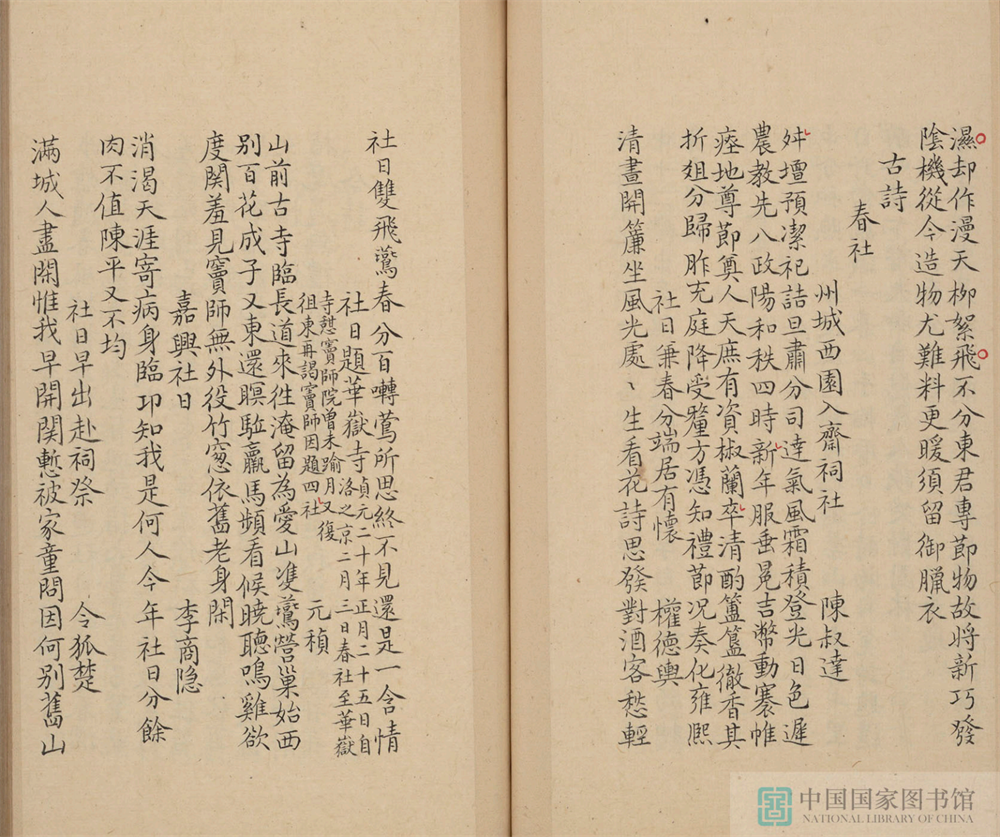 濕却作漫天柳絮飛不分東君專節物故將新巧發
陰機從今造物尤難料更暖須留御臘衣
古詩
春社
州城西園入齋祠社 陳叔達
升壇預潔祀詰旦肅分司達氣風霜積登光日色遲
農教先八政陽和秩四時新年服垂冕吉幣動褰帷
瘞地尊節奠人天庶有資椒蘭卒清酌簠簋徹香其
折俎分歸胙充庭降受釐方憑知禮節况奏化雍熙
社日兼春分端居有懷 權德輿
清晝開簾坐風光處〻生看花詩思發對酒客愁輕
社日雙飛鷰春分百囀鶯所思終不見還是一含情
社日題華嶽寺 貞元二十年正月二十五日自洛之京二月三日春社至華嶽寺憇竇師院曾未踰月又復徂東再謁竇師因題四社 元稹
山前古寺臨長道來徃淹留為愛山雙鷰營巢始西
別百花成子又東還暝駐羸馬頻看候曉聽鳴雞欲
度関羞見竇師無外役竹窓依舊老身閑
嘉興社日 李商隐
消渴天涯寄病身臨邛知我是何人今年社日分餘
肉不值陳平又不均
社日早出赴祠祭 令狐楚
滿城人盡閑惟我早開関慙被家童問因何別舊山
中国国家图书馆
NATIONAL LIBRARY OF CHINA